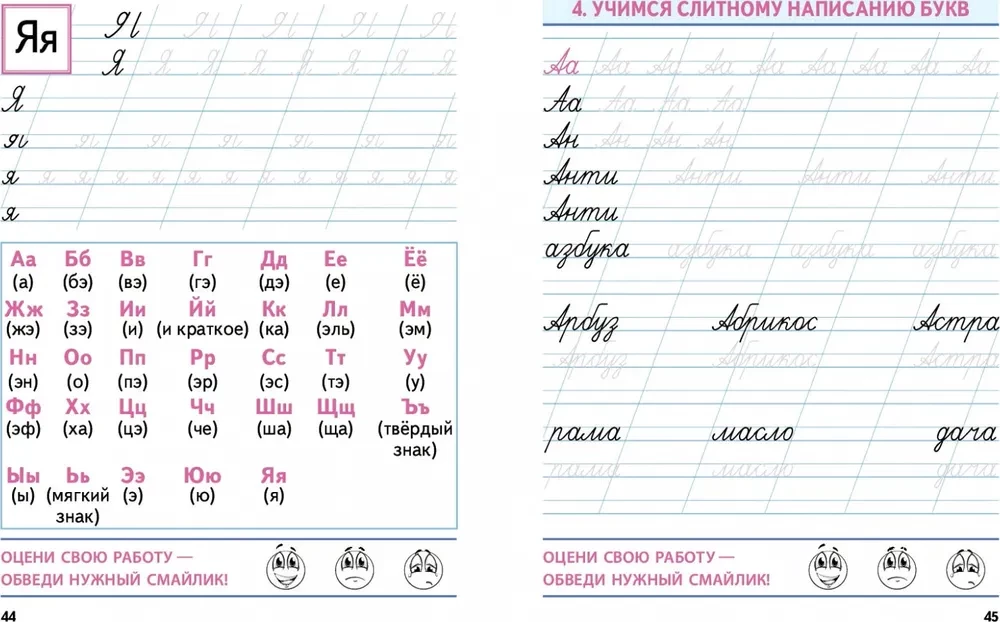 Яя
Я Я Я Я Я Я
Я Я Я Я Я Я Я Я
Я
я я я я я я
я я я я я я я я я я я я я
я
Аа Бб Вв Гг Дд Ее Ёё
(а) (бэ) (вэ) (гэ) (дэ) (е) (ё)
Жж Зз Ии Йй Кк Лл Мм
(жэ) (зэ) (и) (и краткое) (ка) (эль) (эм)
Нн Оо Пп Рр Сс Тт Уу
(эн) (о) (пэ) (эр) (эс) (тэ) (у)
Фф Хх Цц Чч Шш Щщ Ъъ
(эф) (ха) (цэ) (че) (ша) (ща) (твёрдый
знак)
Ыы Ьь Ээ Юю Яя
(ы) (мягкий (э) (ю) (я)
знак)
ОЦЕНИ СВОЮ РАБОТУ —
ОБВЕДИ НУЖНЫЙ СМАЙЛИК!
44
4. УЧИМСЯ СЛИТНОМУ НАПИСАНИЮ БУКВ
Аа Аа Аа Аа Аа Аа Аа Аа Аа
Аа Аа Аа Аа
Ан Ан Ан Ан
Анти Анти Анти Анти
Анти
азбука азбука азбука азбука
Арбуз Абрикос Астра
Арбуз Абрикос Астра
рама масло дача
рама масло дача
ОЦЕНИ СВОЮ РАБОТУ —
ОБВЕДИ НУЖНЫЙ СМАЙЛИК!
45